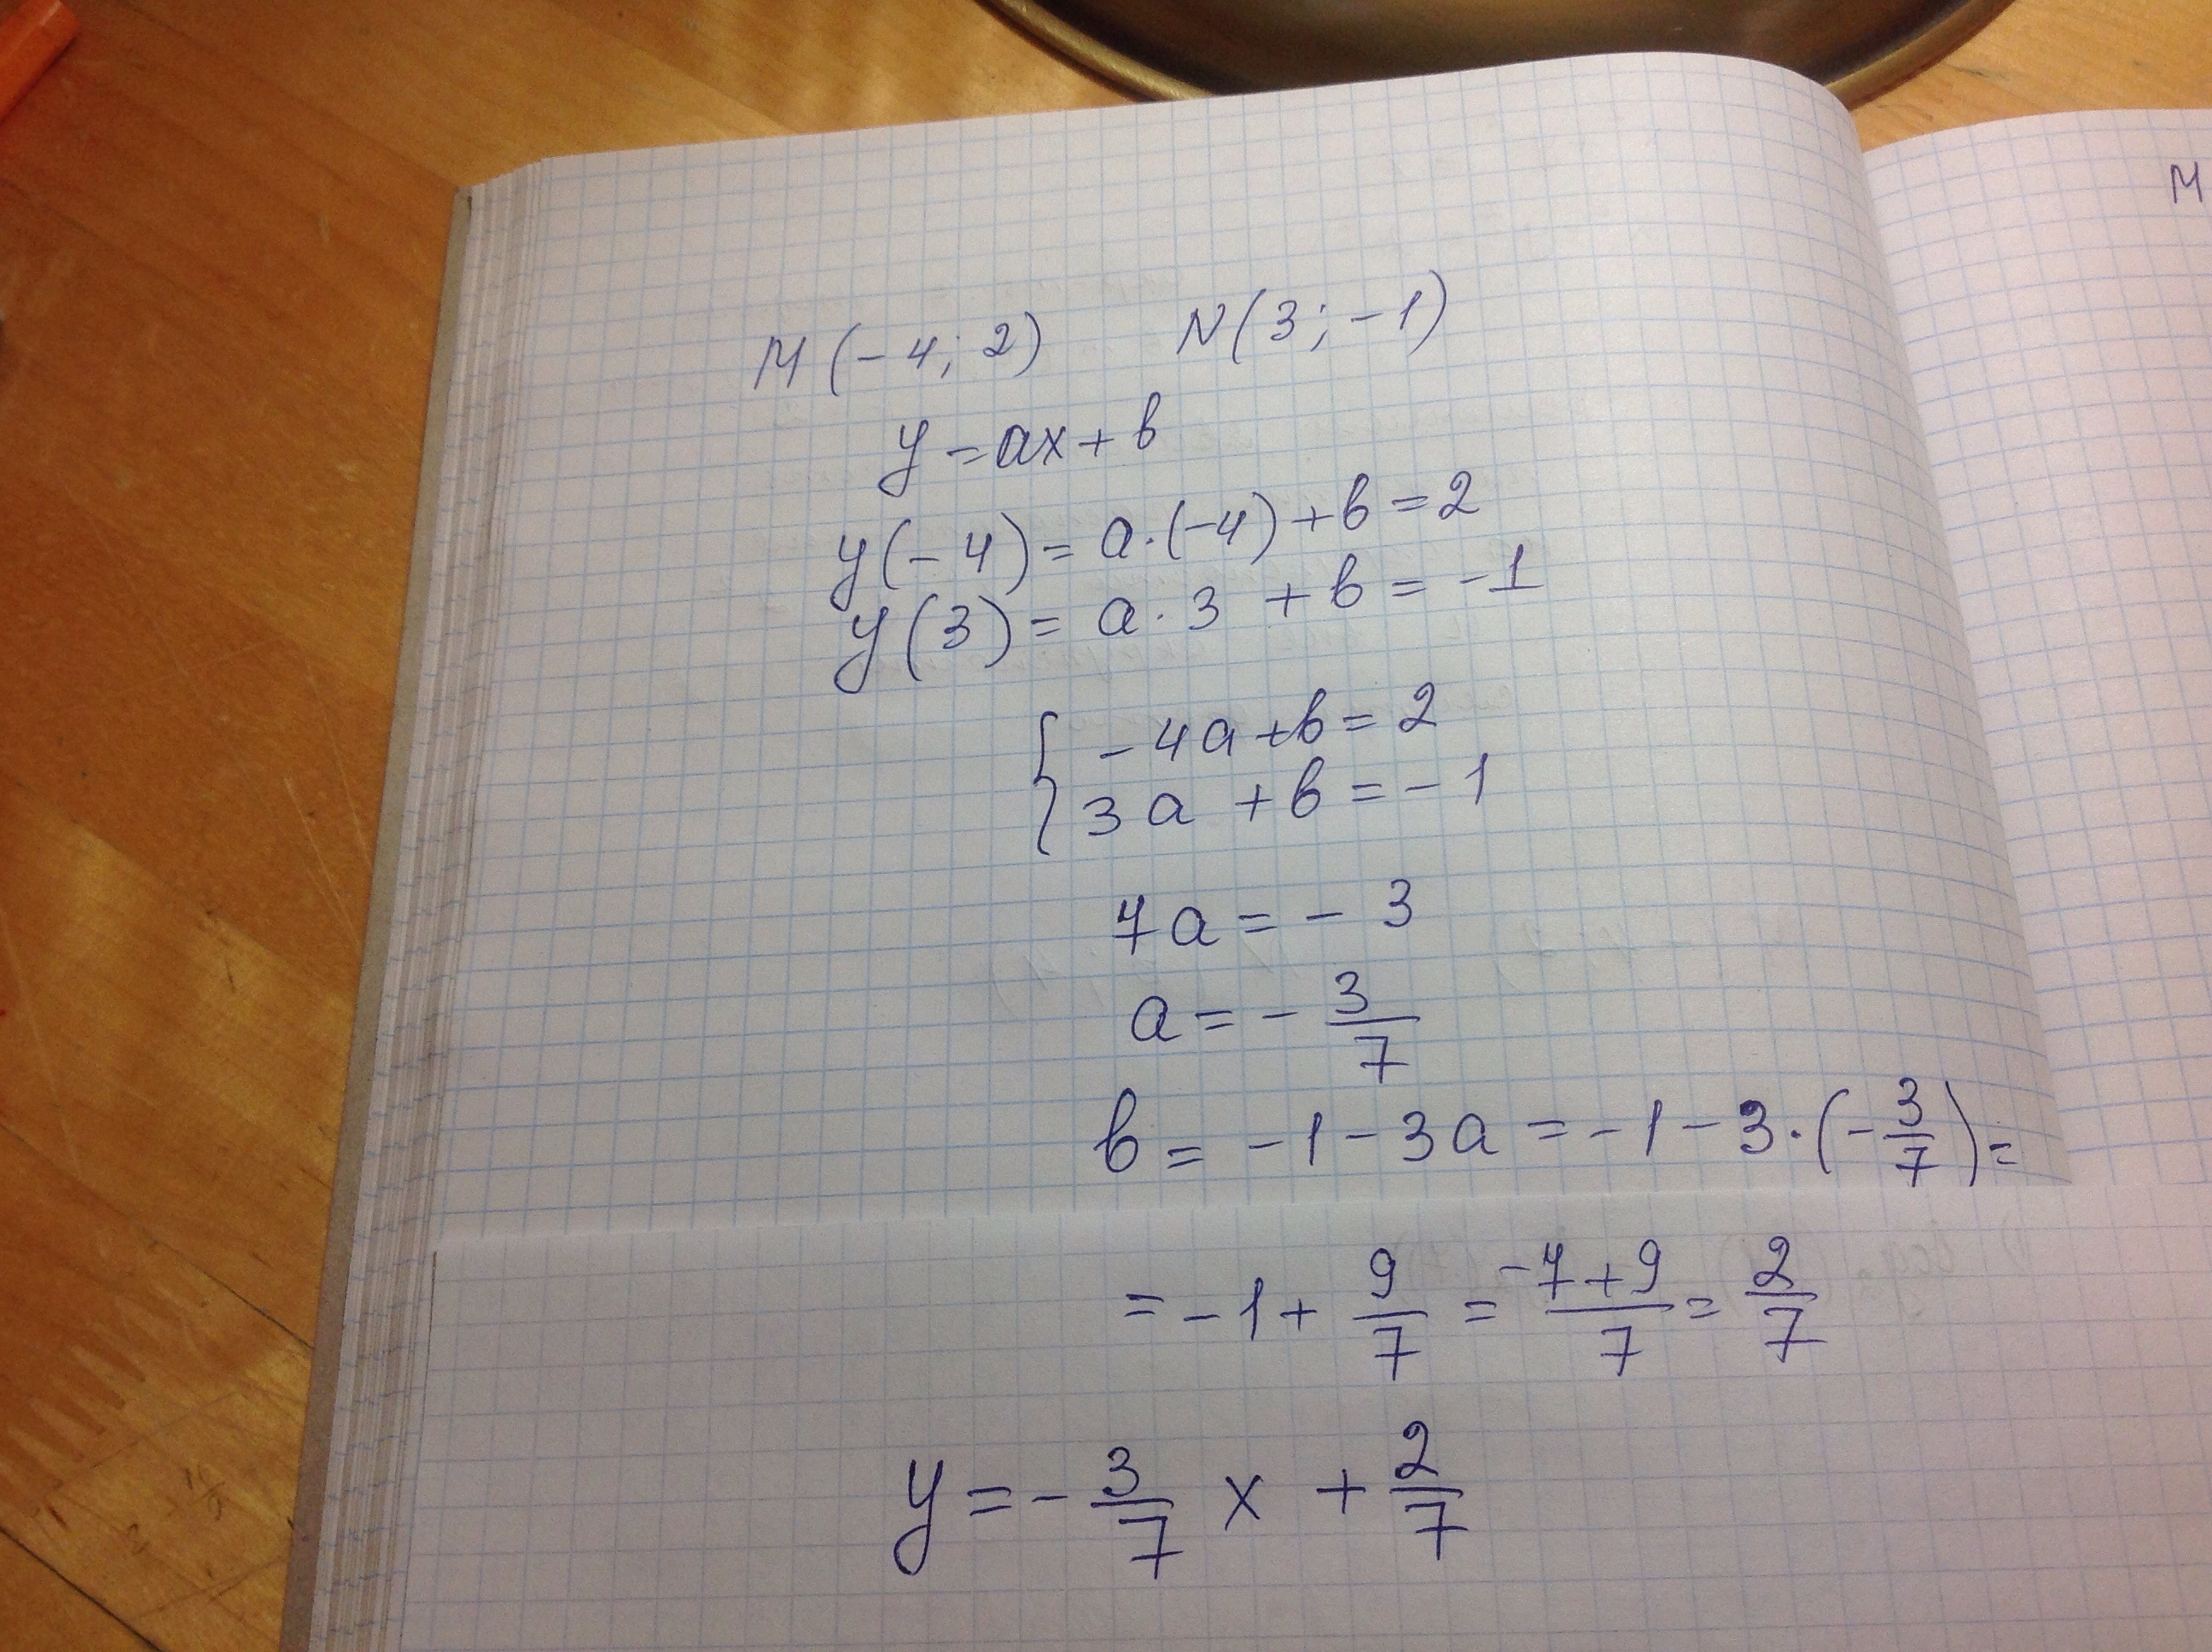 M (-4; 2) N(3; -1)
y = ax + b
y(-4) = a·(-4) + b = 2
y(3) = a·3 + b = -1
{ -4a + b = 2
3a + b = -1
7a = -3
a = - 3/7
b = -1 - 3a = -1 - 3·(- 3/7) =
= -1 + 9/7 = -7+9/7 = 2/7
y = - 3/7 x + 2/7
M